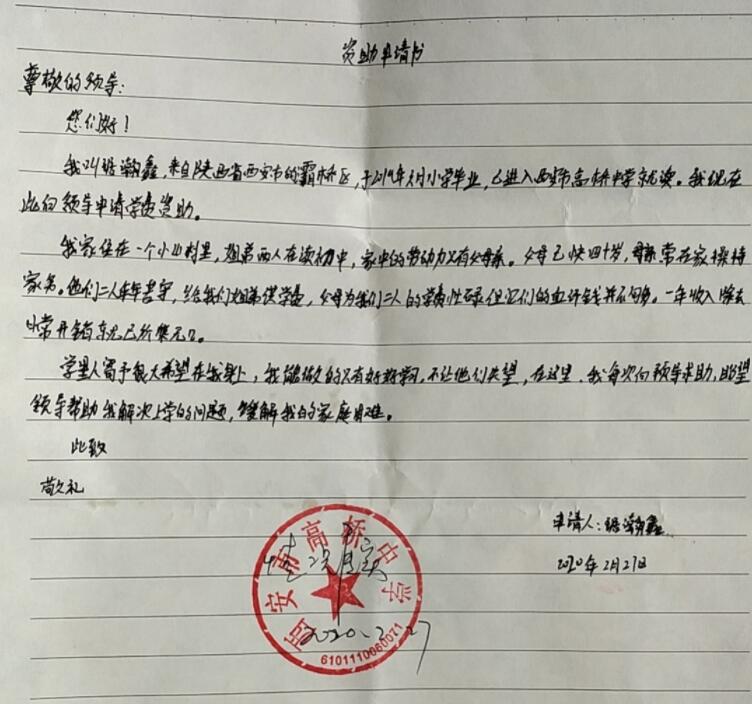 资助申请书
尊敬的领导:
您们好!
我叫班瀚鑫,来自陕西省西安市的霸桥区,于2019年六月小学毕业,已进入西安市高桥中学就读。我现在
此向领导申请学费资助。
我家住在一个小山村里,姐弟两人在读初中,家中的劳动力只有父母亲。父母已快四十岁,母亲常在家操持
家务。他们二人辛辛苦苦,给我们姐弟供学费,父母为我们二人的学费忙碌但它们的血汗钱并不够多。一年收入除去
日常开销东兄已所集无几。
学里人寄予很大希望在我身上,我能做的只有好好学习,不让他们失望,在这里,我每次向领导求助,盼望
领导帮助我解决上学的问题,缓解我的家庭困难。
此致
敬礼
申请人:班瀚鑫
2020年2月27日
情况属实
西安市高桥中学
2020.2.27
6101110060071